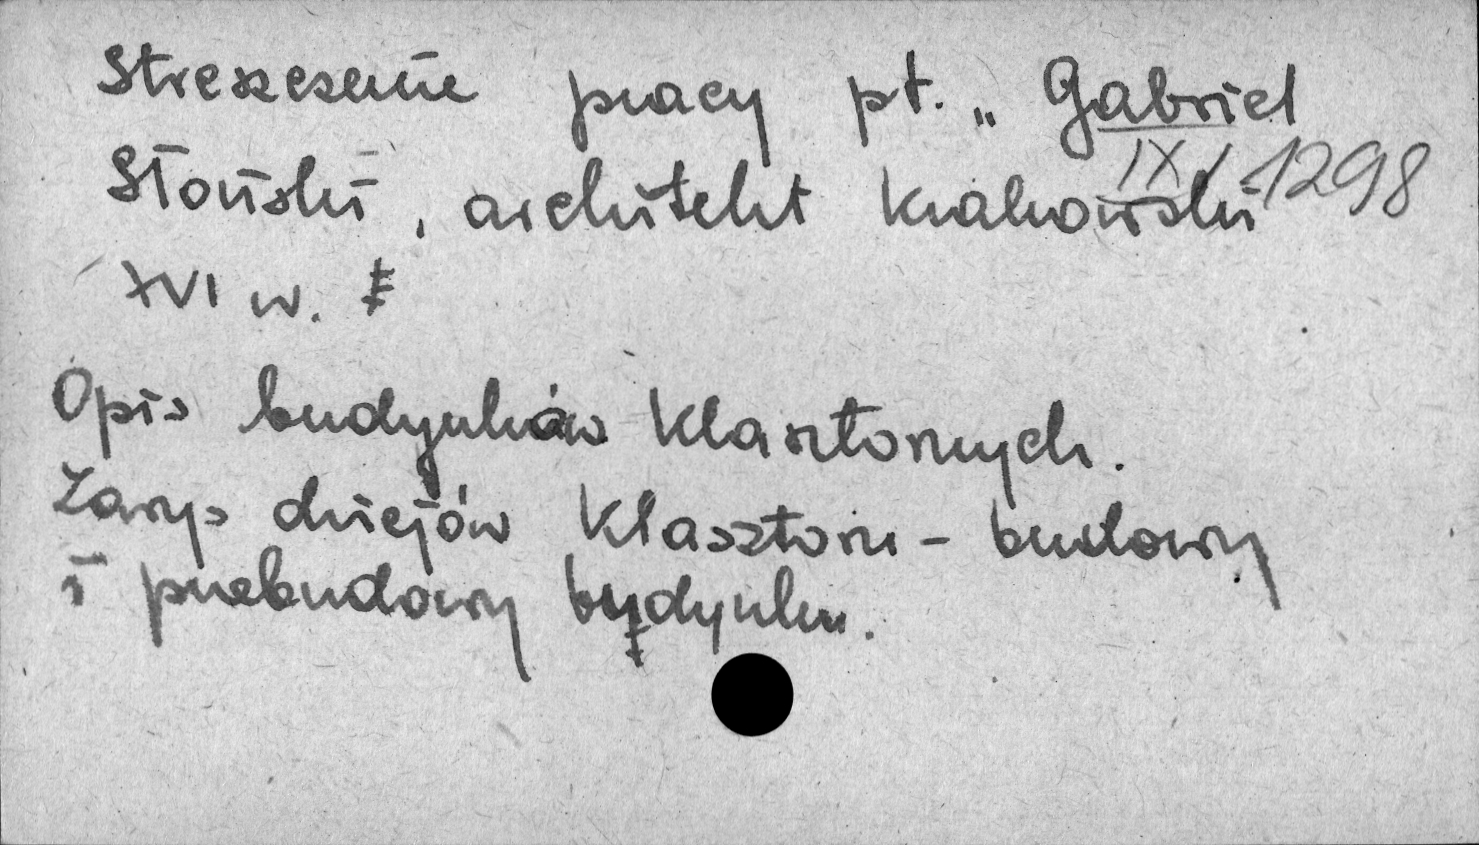 Streszczenie pracy pt. „Gabriel
IX/1298
Słoński, architekt krakowski
XVI w.
Opis budynków klasztornych.
Zarys dziejów klasztoru - budowy
i przebudowy budynku.